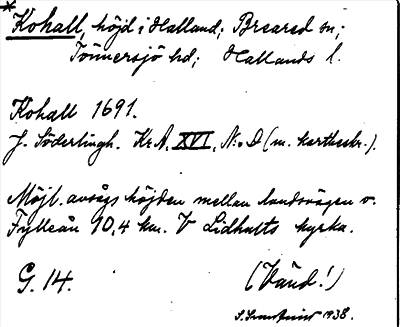 * Kohall, höjd i Halland; Breared sn;
Tönnersjö hd; Hallands l.
Kohall 1691.
J. Söderlingh. Kr.A. XVI, N:o D (m. kartbeskr.).
Möjl. avsågs höjden mellan landsvägen o.
Fylleån 10,4 km. V Lidhults kyrka.
G. 14. (Vänd!)
1938.